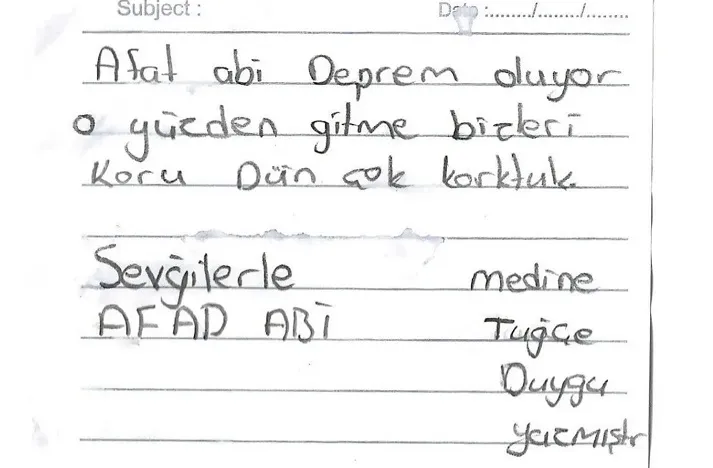 Subject : Date :......../......../........
Afat abi Deprem oluyor
o yüzden gitme bizleri
Koru Dün çok korktuk.
Sevğilerle medine
AFAD ABİ Tuğçe
Duygu
yazmıştr